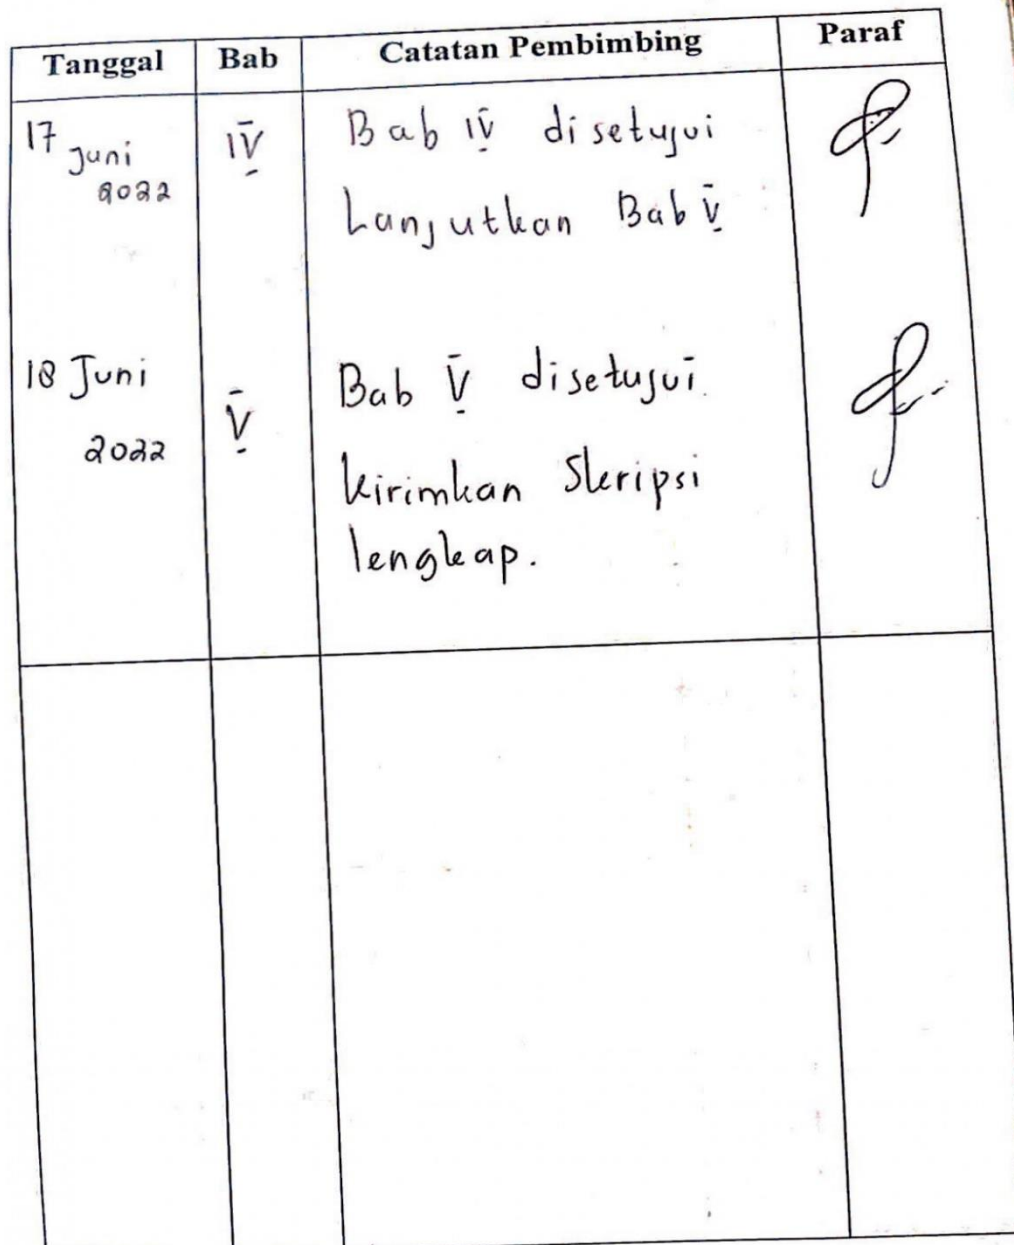 Tanggal Bab Catatan Pembimbing Paraf
17 Juni 2022 IV Bab IV disetujui
Lanjutkan Bab V
18 Juni 2022 V Bab V disetujui.
kirimkan Skripsi
lengkap.